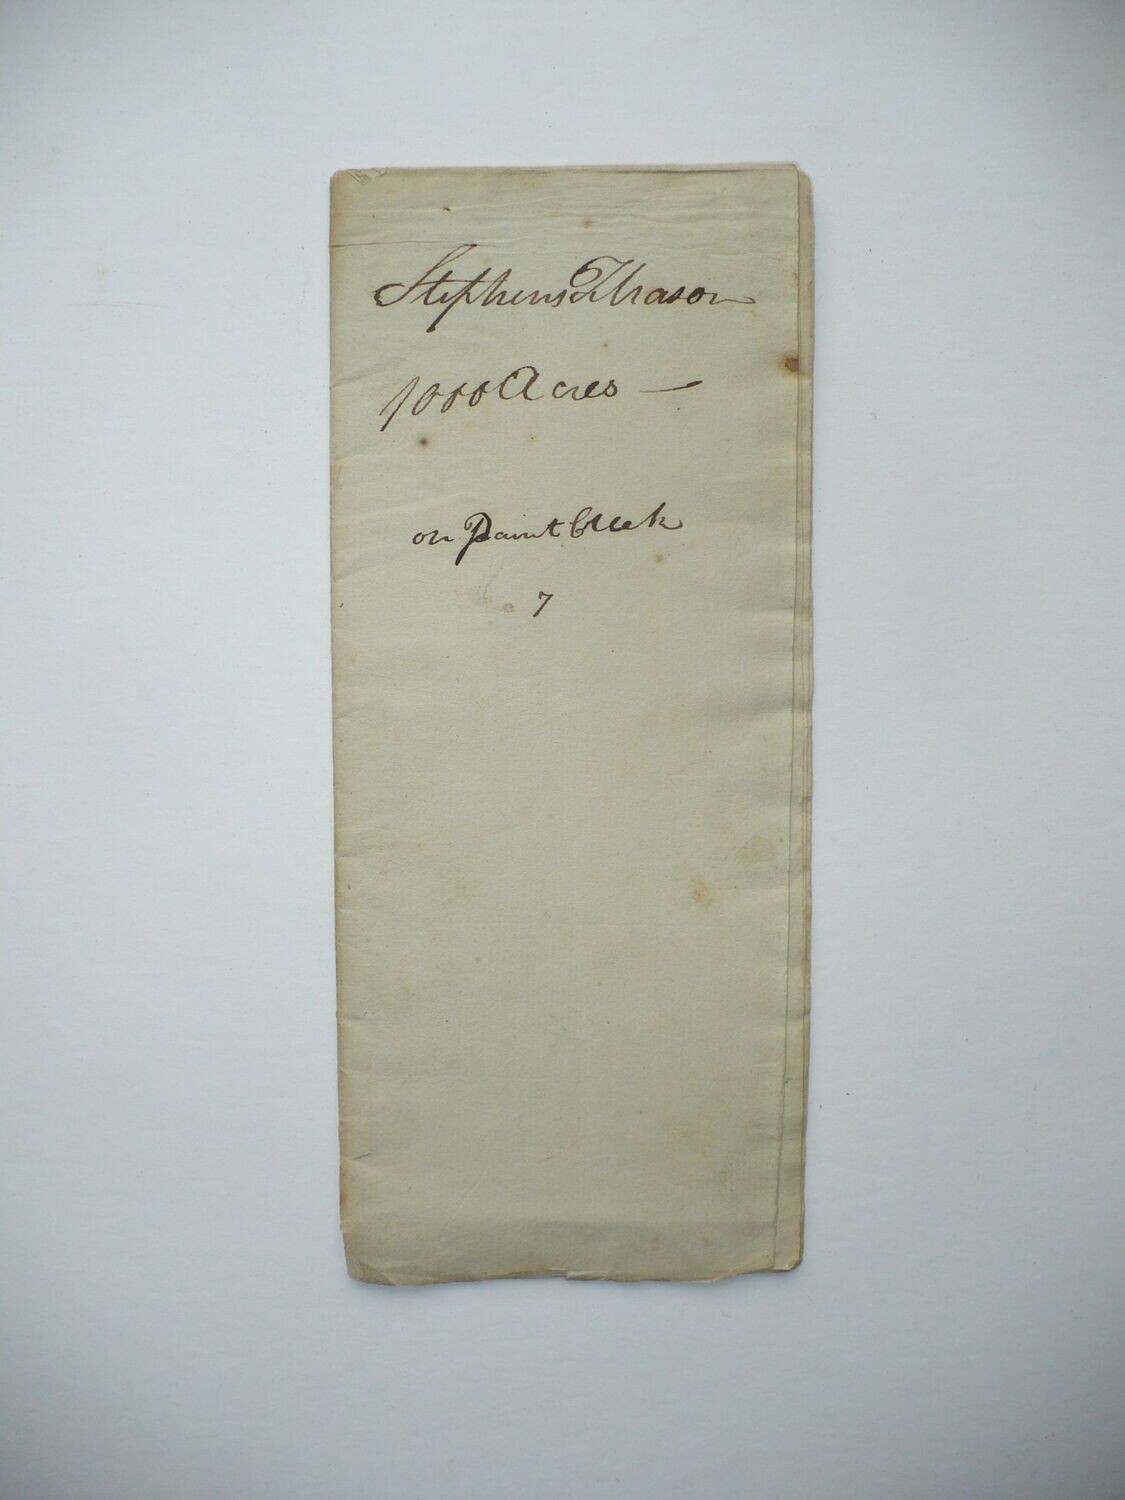 Stephens Thrason
1000 Acres —
on Paint Creek
7